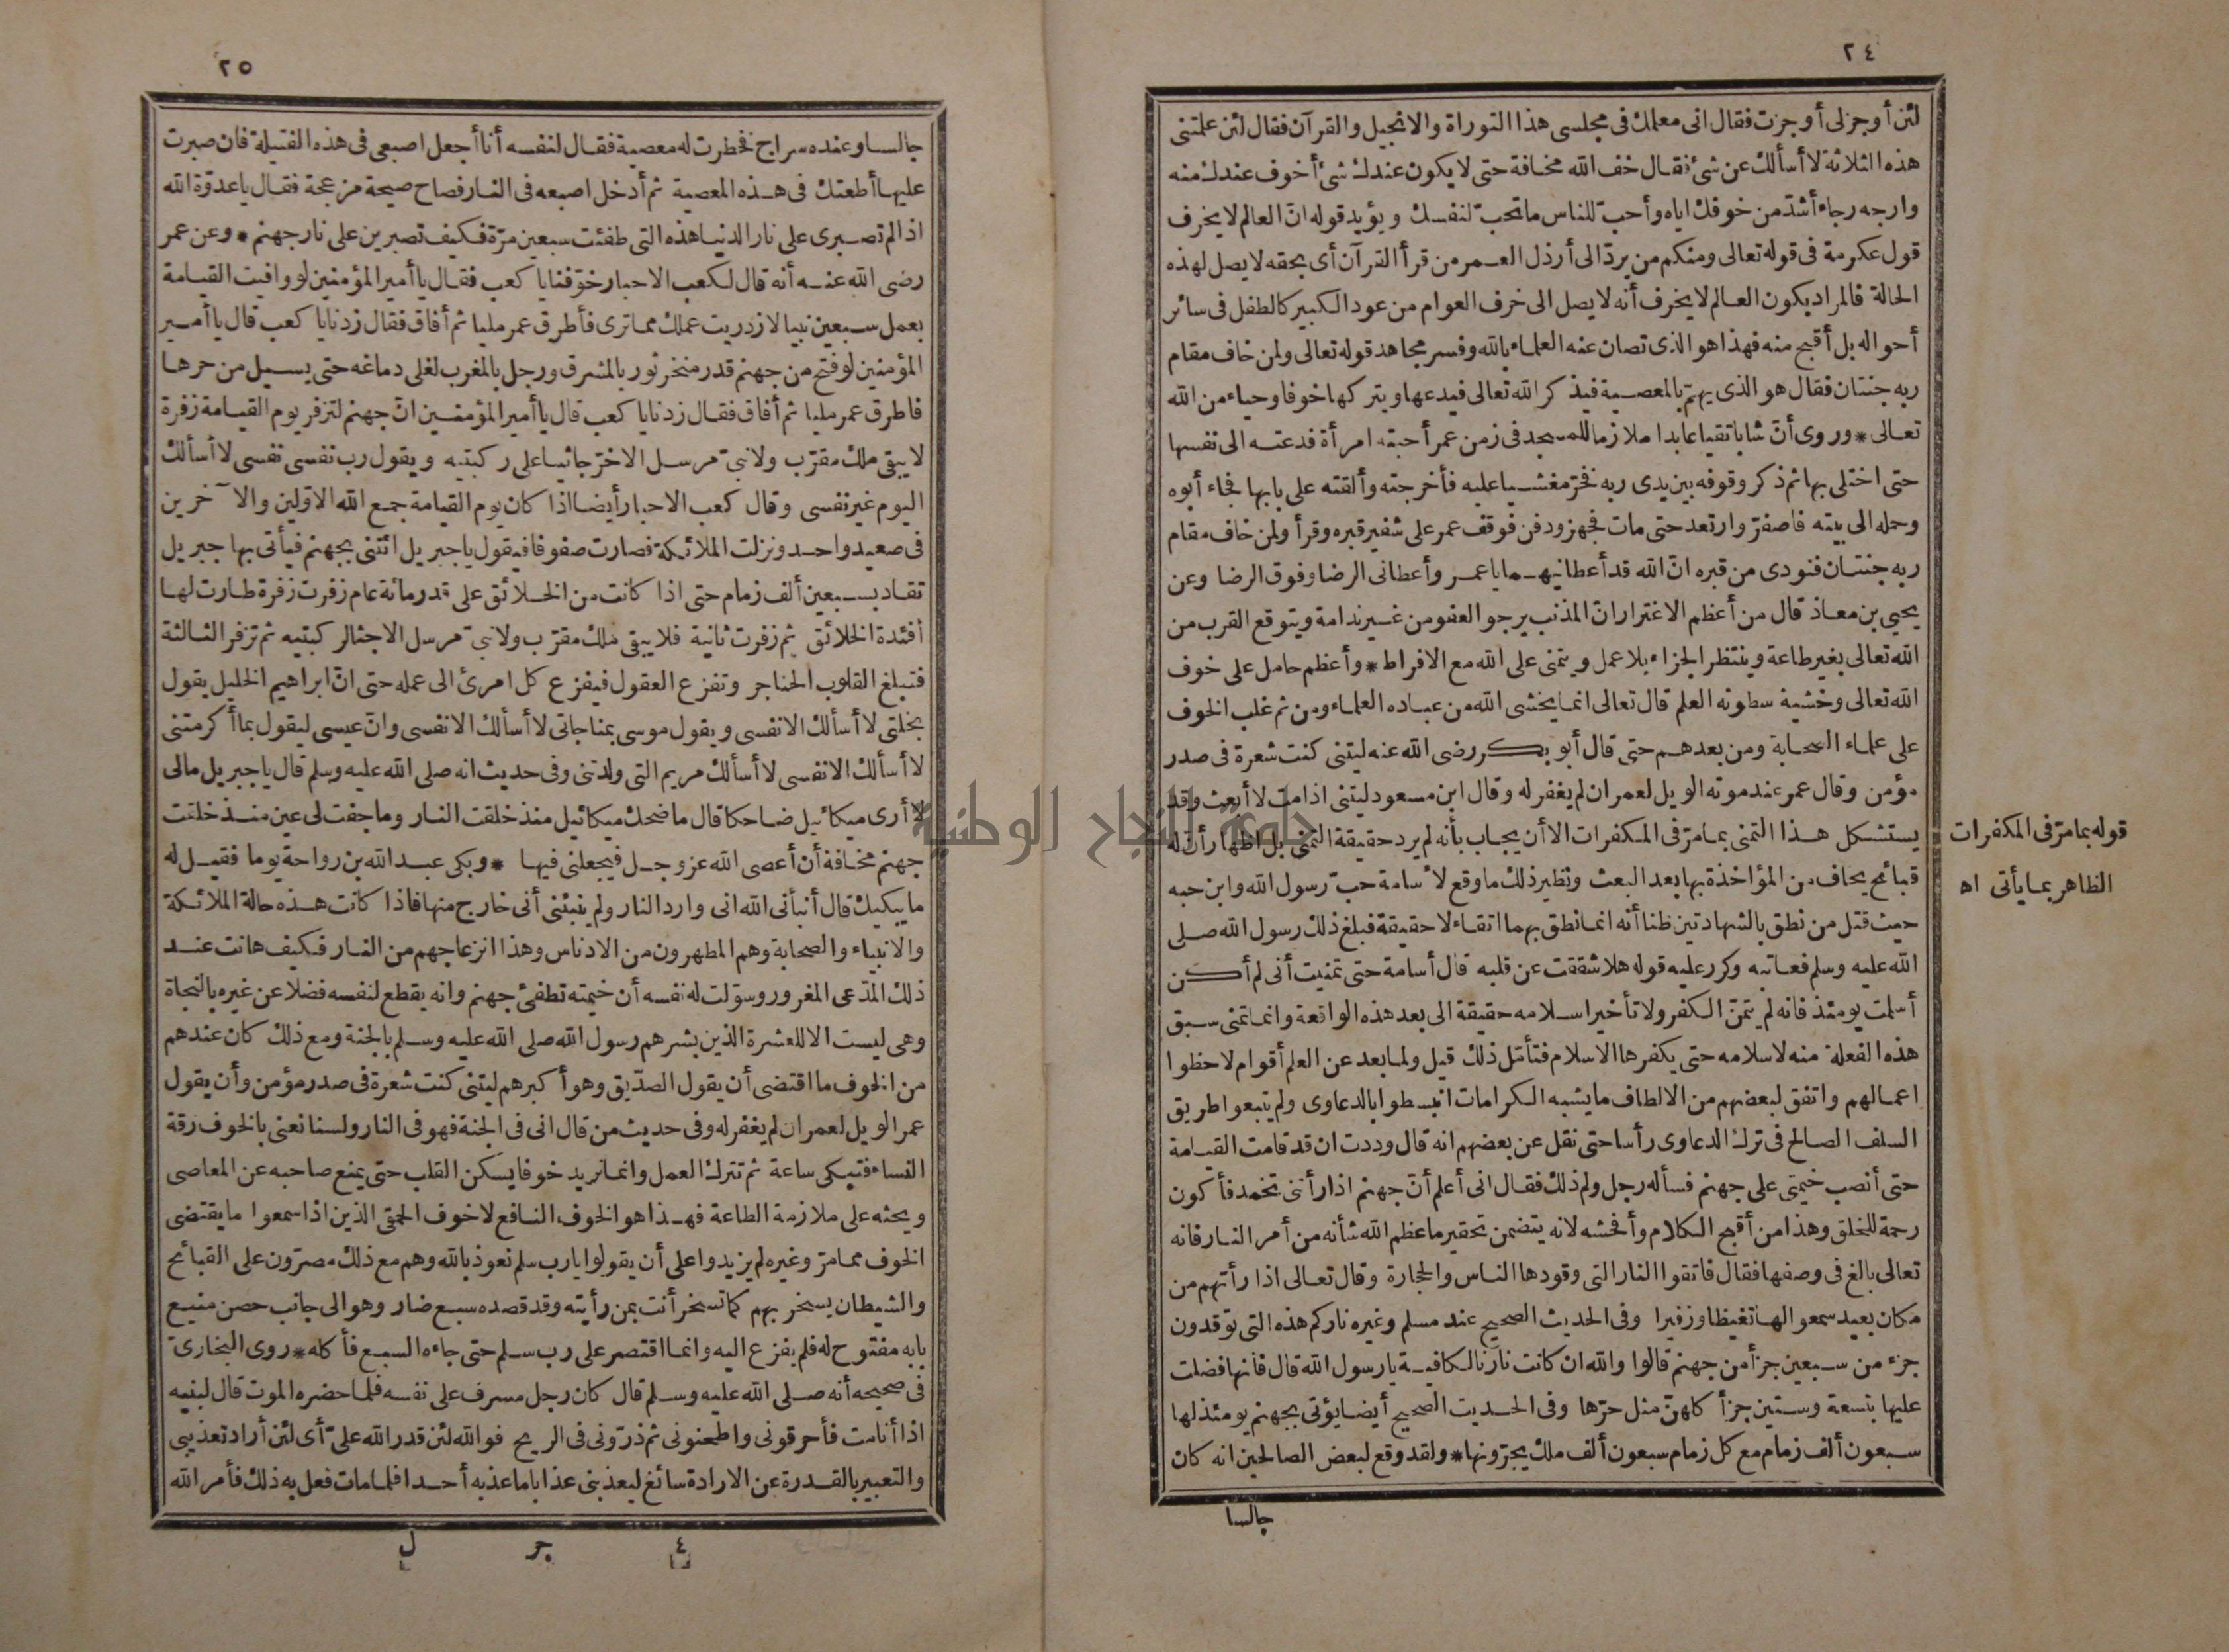 ٢٤
لئن أوجزلى أوجزت فقال انى معلمك فى مجلسى هذا التوراة والانجيل والقرآن فقال لئن علمتنى
هذه الثلاثة لا أسألك عن شئ فقال خف الله مخافة حتى لا يكون عندك شئ أخوف عندك منه
وارجه رجاء أشدّ من خوفك اياه وأحبّ للناس ما تحبّ لنفسك ويؤيد قوله انّ العالم لا يخرف
قول عكرمة فى قوله تعالى ومنكم من يردّ الى أرذل العمر من قرأ القرآن أى بحقه لا يصل لهذه
الحالة فالمراد بكون العالم لا يخرف أنه لا يصل الى خرف العوام من عود الكبير كالطفل فى سائر
أحواله بل أقبح منه فهذا هو الذى تصان عنه العلماء بالله وفسر مجاهد قوله تعالى ولمن خاف مقام
ربه جنتان فقال هو الذى يهمّ بالمعصية فيذكر الله تعالى فيدعها ويتركها خوفا وحياء من الله
تعالى * وروى أنّ شابا تقيا عابدا ملازما للمسجد فى زمن عمر أحبته امرأة فدعته الى نفسها
حتى اختلى بها ثم ذكر وقوفه بين يدى ربه فخرّ مغشيا عليه فأخرجته وألقته على بابها فجاء أبوه
وحمله الى بيته فاصفرّ وارتعد حتى مات فجهز ودفن فوقف عمر على شفير قبره وقرأ ولمن خاف مقام
ربه جنتان فنودى من قبره انّ الله قد أعطانيهما يا عمر وأعطانى الرضا وفوق الرضا وعن
يحيى بن معاذ قال من أعظم الاغترار انّ المذنب يرجو العفو من غير ندامة ويتوقع القرب من
الله تعالى بغير طاعة وينتظر الجزاء بلا عمل ويتمنى على الله مع الافراط * وأعظم حامل على خوف
الله تعالى وخشية سطوته العلم قال تعالى انما يخشى الله من عباده العلماء ومن ثم غلب الخوف
على علماء الصحابة ومن بعدهم حتى قال أبو بكر رضى الله عنه ليتنى كنت شعرة فى صدر
مؤمن وقال عمر عند موته الويل لعمر ان لم يغفر له وقال ابن مسعود ليتنى اذا مت لا أبعث وقد
يستشكل هذا التمنى بما مرّ فى المكفرات الا أن يجاب بأنه لم يرد حقيقة التمنى بل اظهار أن له
قبائح يخاف من المؤاخذة بها بعد البعث ونظير ذلك ما وقع لأسامة حبّ رسول الله وابن حبه
حيث قتل من نطق بالشهادتين ظنا أنه انما نطق بهما اتقاء لا حقيقة فبلغ ذلك رسول الله صلى
الله عليه وسلم فعاتبه وكرر عليه قوله هلا شققت عن قلبه قال أسامة حتى تمنيت أنى لم أكن
أسلمت يومئذ فانه لم يتمنّ الكفر ولا تأخير اسلامه حقيقة الى بعد هذه الواقعة وانما تمنى سبق
هذه الفعلة منه لاسلامه حتى يكفرها الاسلام فتأمّل ذلك قيل ولما بعد عن العلم أقوام لاحظوا
اعمالهم واتفق لبعضهم من الالطاف ما يشبه الكرامات انبسطوا بالدعاوى ولم يتبعوا طريق
السلف الصالح فى ترك الدعاوى رأسا حتى نقل عن بعضهم انه قال وددت ان قد قامت القيامة
حتى أنصب خيمتى على جهنم فسأله رجل ولم ذلك فقال انى أعلم أنّ جهنم اذا رأتنى تخمد فأكون
رحمة للخلق وهذا من أقبح الكلام وأفحشه لانه يتضمن تحقير ما عظم الله شأنه من أمر النار فانه
تعالى بالغ فى وصفها فقال فاتقوا النار التى وقودها الناس والحجارة وقال تعالى اذا رأتهم من
مكان بعيد سمعوا لها تغيظا وزفيرا وفى الحديث الصحيح عند مسلم وغيره ناركم هذه التى توقدون
جزء من سبعين جزأ من جهنم قالوا والله ان كانت نارنا لكافية يا رسول الله قال فانها فضلت
عليها بتسعة وستين جزأ كلهنّ مثل حرّها وفى الحديث الصحيح أيضا يؤتى بجهنم يومئذ لها
سبعون ألف زمام مع كل زمام سبعون ألف ملك يجرّونها * ولقد وقع لبعض الصالحين انه كان
جالسا
قوله بما مرّ فى المكفرات
الظاهر بما يأتى اه
٢٥
جالسا وعنده سراج فخطرت له معصية فقال لنفسه أنا أجعل اصبعى فى هذه الفتيلة فان صبرت
عليها أطعتك فى هذه المعصية ثم أدخل اصبعه فى النار فصاح صيحة مزعجة فقال يا عدوّة الله
اذا لم تصبرى على نار الدنيا هذه التى طفئت سبعين مرّة فكيف تصبرين على نار جهنم * وعن عمر
رضى الله عنه أنه قال لكعب الاحبار خوّفنا يا كعب فقال يا أمير المؤمنين لو وافيت القيامة
بعمل سبعين نبيا لازدريت عملك مما ترى فأطرق عمر مليا ثم أفاق فقال زدنا يا كعب قال يا أمير
المؤمنين لو فتح من جهنم قدر منخر ثور بالمشرق ورجل بالمغرب لغلى دماغه حتى يسيل من حرها
فاطرق عمر مليا ثم أفاق فقال زدنا يا كعب قال يا أمير المؤمنين انّ جهنم لتزفر يوم القيامة زفرة
لا يبقى ملك مقرّب ولا نبىّ مرسل الا خرّ جاثيا على ركبتيه ويقول رب نفسى نفسى لا أسألك
اليوم غير نفسى وقال كعب الاحبار أيضا اذا كان يوم القيامة جمع الله الاوّلين والآخرين
فى صعيد واحد ونزلت الملائكة فصارت صفوفا فيقول يا جبريل ائتنى بجهنم فيأتى بها جبريل
تقاد بسبعين ألف زمام حتى اذا كانت من الخلائق على قدر مائة عام زفرت زفرة طارت لها
أفئدة الخلائق ثم زفرت ثانية فلا يبقى ملك مقرّب ولا نبىّ مرسل الا جثا لركبتيه ثم تزفر الثالثة
فتبلغ القلوب الحناجر وتفزع العقول فيفزع كل امرئ الى عمله حتى انّ ابراهيم الخليل يقول
بخلتى لا أسألك الا نفسى ويقول موسى بمناجاتى لا أسألك الا نفسى وانّ عيسى ليقول بما أكرمتنى
لا أسألك الا نفسى لا أسألك مريم التى ولدتنى وفى حديث انه صلى الله عليه وسلم قال يا جبريل مالى
لا أرى ميكائيل ضاحكا قال ما ضحك ميكائيل منذ خلقت النار وما جفت لى عين منذ خلقت
جهنم مخافة أن أعصى الله عز وجل فيجعلنى فيها * وبكى عبد الله بن رواحة يوما فقيل له
ما يبكيك قال أنبأنى الله انى وارد النار ولم ينبئنى أنى خارج منها فاذا كانت هذه حالة الملائكة
والانبياء والصحابة وهم المطهرون من الادناس وهذا انزعاجهم من النار فكيف هانت عند
ذلك المدّعى المغرور وسوّلت له نفسه أن خيمته تطفئ جهنم وانه يقطع لنفسه فضلا عن غيره بالنجاة
وهى ليست الا للعشرة الذين بشرهم رسول الله صلى الله عليه وسلم بالجنة ومع ذلك كان عندهم
من الخوف ما اقتضى أن يقول الصدّيق وهو أكبرهم ليتنى كنت شعرة فى صدر مؤمن وأن يقول
عمر الويل لعمر ان لم يغفر له وفى حديث من قال انى فى الجنة فهو فى النار ولسنا نعنى بالخوف رقة
النساء فتبكى ساعة ثم تترك العمل وانما نريد خوفا يسكن القلب حتى يمنع صاحبه عن المعاصى
ويحثه على ملازمة الطاعة فهذا هو الخوف النافع لا خوف الحمقى الذين اذا سمعوا ما يقتضى
الخوف مما مرّ وغيره لم يزيدوا على أن يقولوا يا رب سلم نعوذ بالله وهم مع ذلك مصرّون على القبائح
والشيطان يسخر بهم كما تسخر أنت بمن رأيته وقد قصده سبع ضار وهو الى جانب حصن منيع
بابه مفتوح له فلم يفزع اليه وانما اقتصر على رب سلم حتى جاءه السبع فأكله * روى البخارىّ
فى صحيحه أنه صلى الله عليه وسلم قال كان رجل مسرف على نفسه فلما حضره الموت قال لبنيه
اذا أنا مت فأحرقونى واطحنونى ثم ذرّونى فى الريح فوالله لئن قدر الله علىّ أى لئن أراد تعذيبى
والتعبير بالقدرة عن الارادة سائغ ليعذبنى عذابا ما عذبه أحدا فلما مات فعل به ذلك فأمر الله
٤ جر ل
جامعة النجاح الوطنية